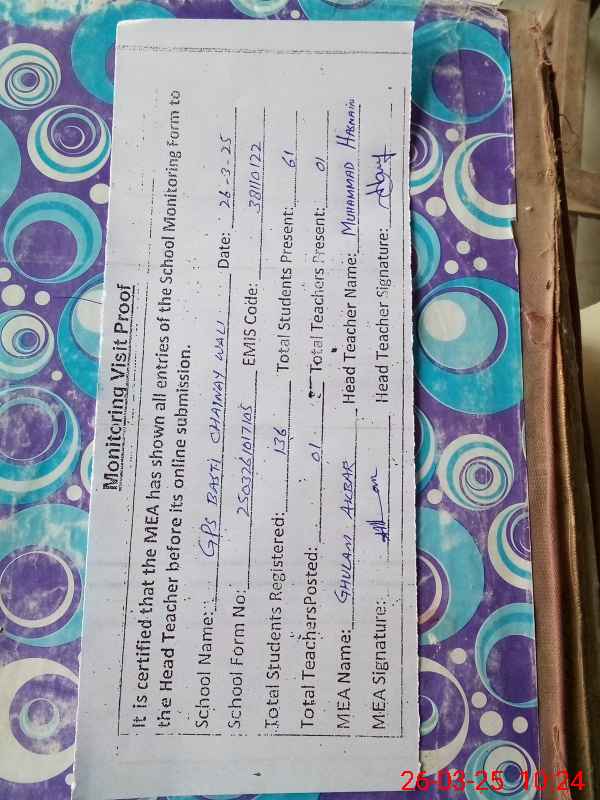 Monitoring Visit Proof
It is certified that the MEA has shown all entries of the School Monitoring Form to
the Head Teacher before its online submission.
School Name: GPS BASTI CHAINAY WALI Date: 26-3-25
School Form No: 2503261017105 EMIS Code: 38110122
Total Students Registered: 136 Total Students Present: 61
Total TeachersPosted: 01 Total Teachers Present: 01
MEA Name: GHULAM AKBAR Head Teacher Name: MUHAMMAD HASNAIN
MEA Signature: Head Teacher Signature:
26-03-25 10:24